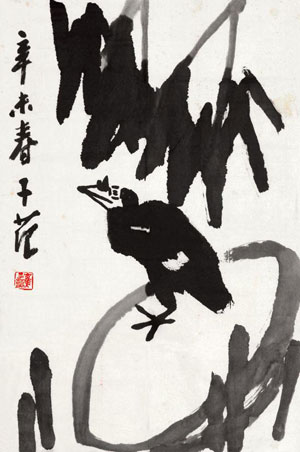 辛未春子范